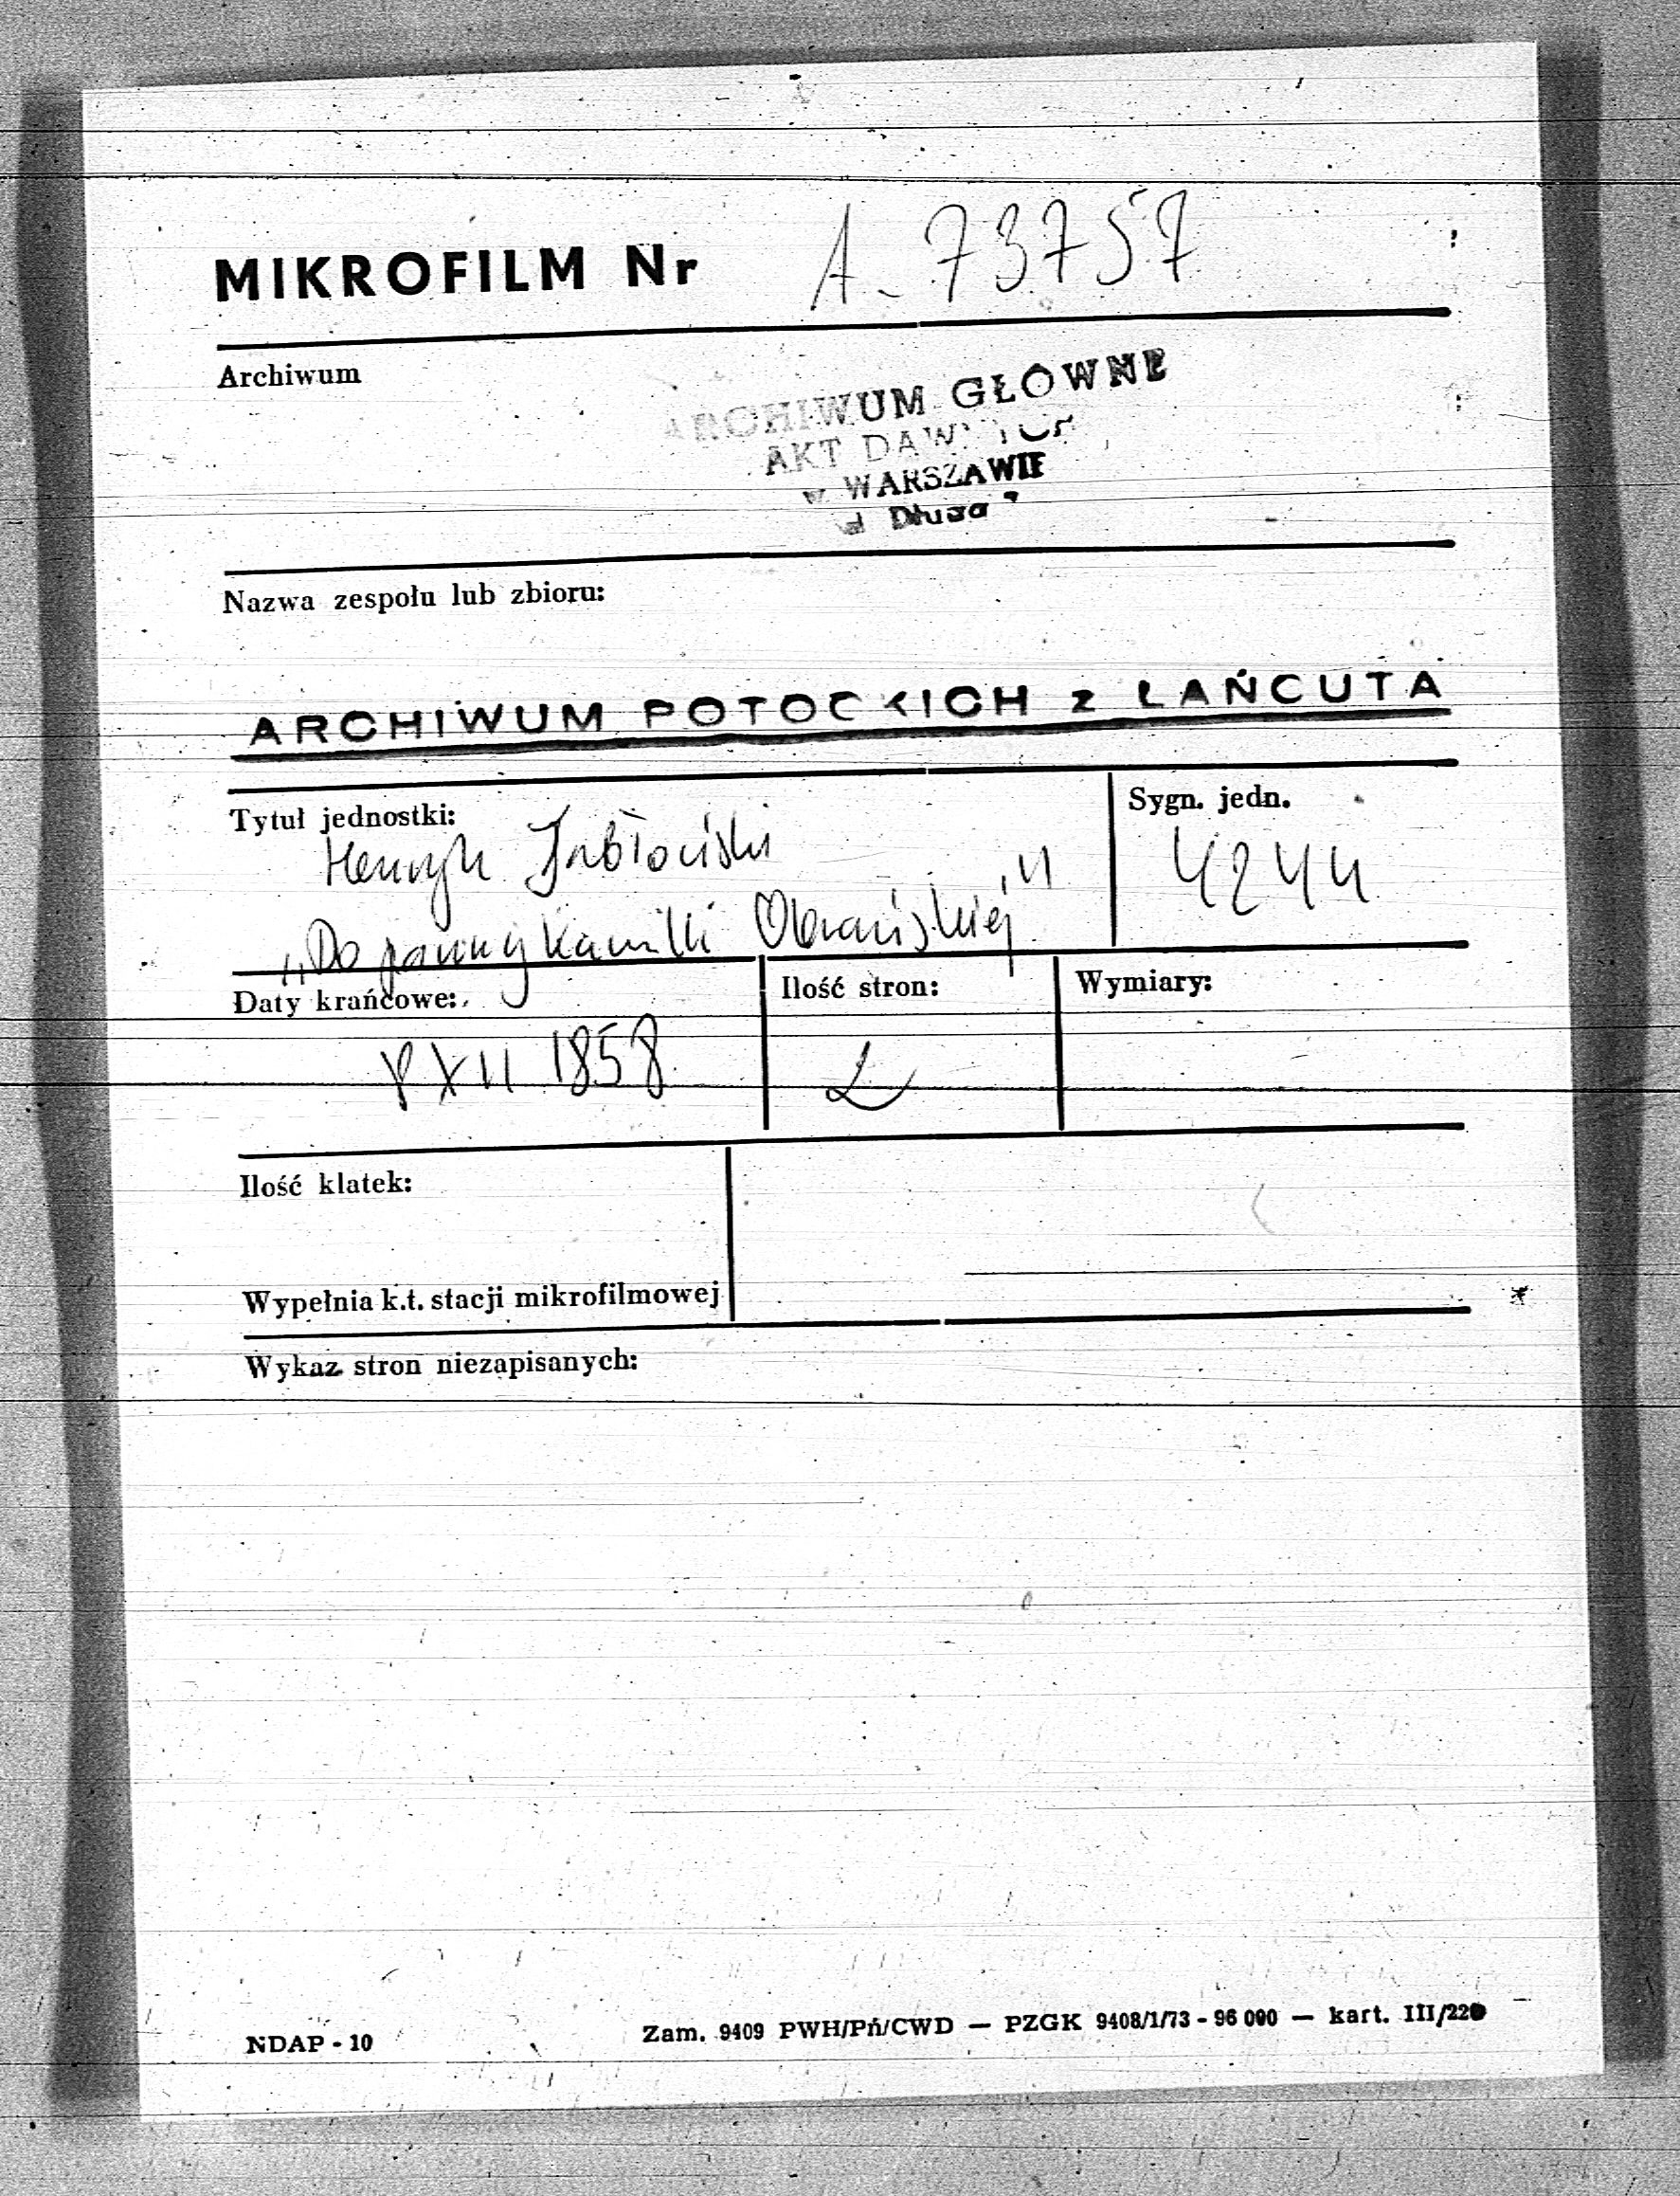 MIKROFILM Nr A-73757
Archiwum
ARCHIWUM GŁÓWNE
AKT DAWNYCH
w WARSZAWIE
ul Długa 7
Nazwa zespołu lub zbioru:
ARCHIWUM POTOCKICH z ŁAŃCUTA
Tytuł jednostki:
Sygn. jedn.
Henryk Jabłoński
4244
„Do panny Kamilli
Daty krańcowe:
Ilość stron:
Wymiary:
XII 1858
2
Ilość klatek:
Wypełnia k.t. stacji mikrofilmowej
Wykaz stron niezapisanych:
NDAP - 10
Zam. 9409 PWH/Pń/CWD — PZGK 9408/1/73 - 96 000 — kart. III/220